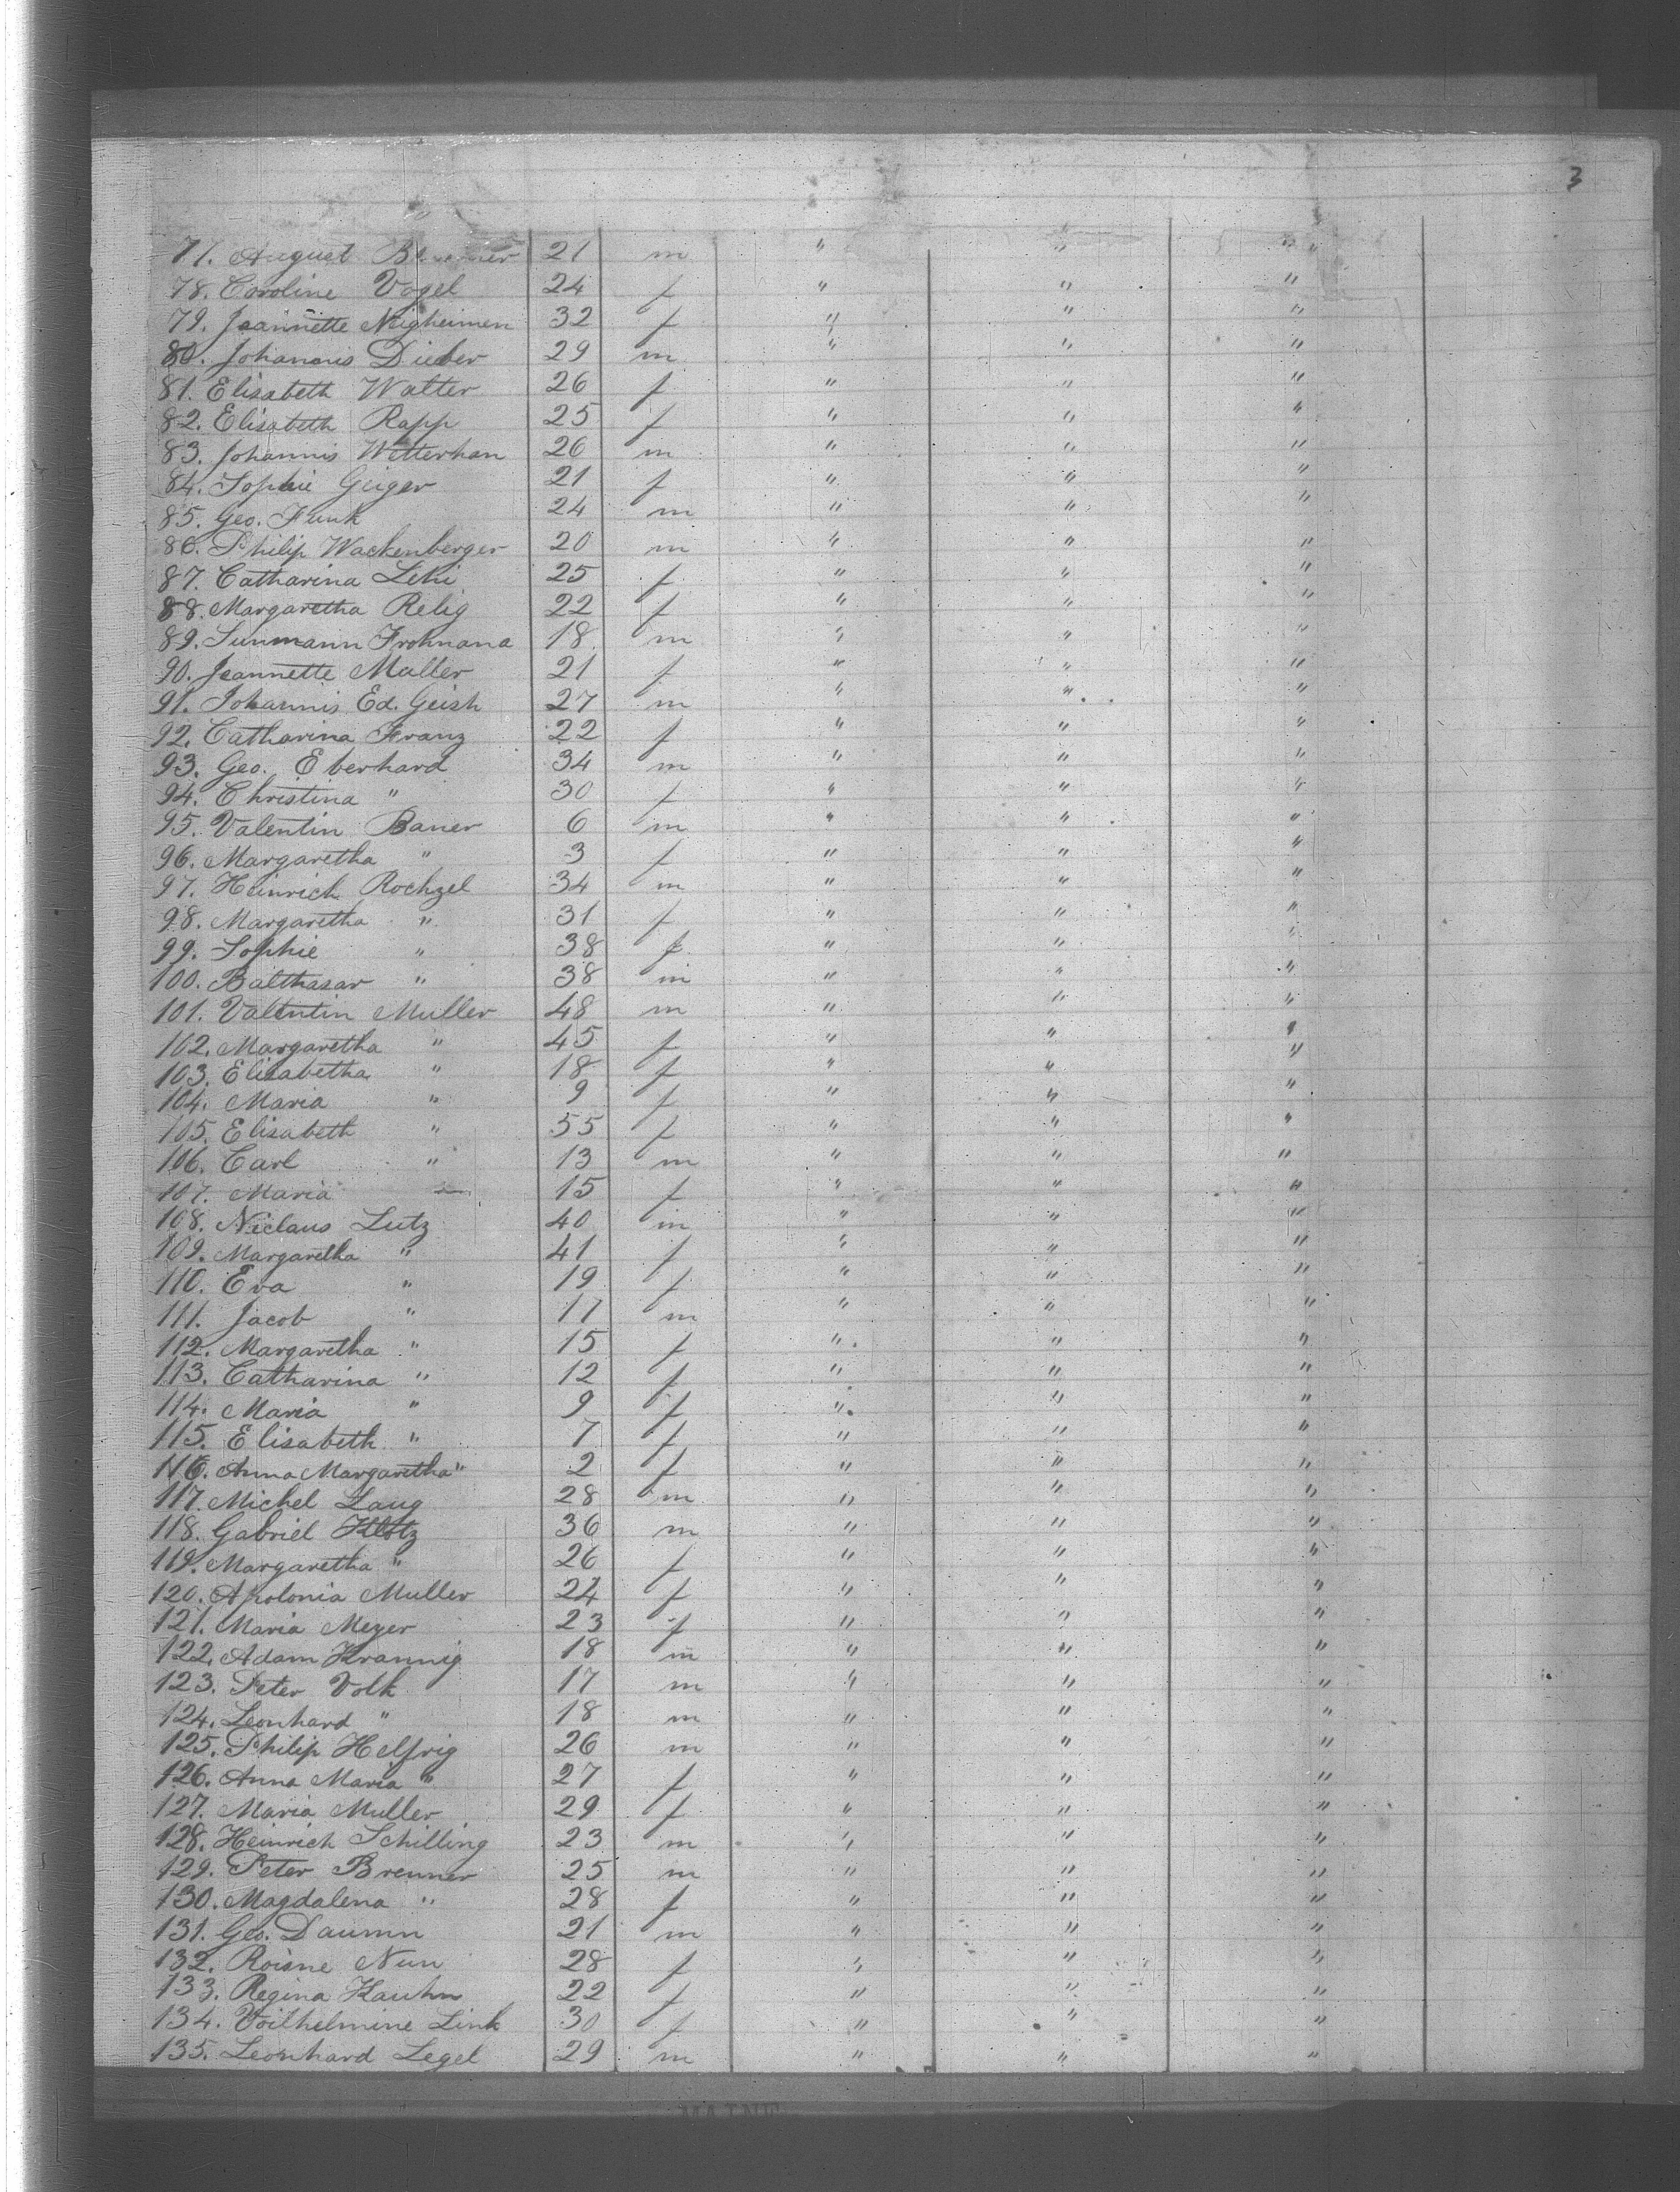 3
77. August 21 m " " " "
78. Caroline Vogel 24 f " " "
79. Jeannette Nigheimen 32 f " " "
80. Johannis Dieber 29 m " " "
81. Elisabeth Walter 26 f " " "
82. Elisabeth Rapp 25 f " " "
83. Johannis Wetterhan 26 m " " "
84. Sophie Geiger 21 f " " "
85. Geo. Funk 24 m " " "
86. Philip Wackenberger 20 m " " "
87. Catharina Lehi 25 f " " "
88. Margaretha Relig 22 f " " "
89. Sunmann Frohnana 18 m " " "
90. Jeannette Muller 21 f " " "
91. Johannis Ed. Geish 27 m " " "
92. Catharina Franz 22 f " " "
93. Geo. Eberhard 34 m " " "
94. Christina " 30 f " " "
95. Valentin Baner 6 m " " "
96. Margaretha " 3 f " " "
97. Heinrich Rochzel 34 m " " "
98. Margaretha " 31 f " " "
99. Sophie " 38 f " " "
100. Balthasar " 38 m " " "
101. Valentin Muller 48 m " " "
102. Margaretha " 45 f " " "
103. Elisabetha " 18 f " " "
104. Maria " 9 f " " "
105. Elisabeth " 55 f " " "
106. Carl " 13 m " " "
107. Maria " 15 f " " "
108. Niclaus Lutz 40 m " " "
109. Margaretha " 41 f " " "
110. Eva " 19 f " " "
111. Jacob " 17 m " " "
112. Margaretha " 15 f " " "
113. Catharina " 12 f " " "
114. Maria " 9 f " " "
115. Elisabeth " 7 f " " "
116. Anna Margaretha " 2 f " " "
117. Michel Laug 28 m " " "
118. Gabriel Klotz 36 m " " "
119. Margaretha " 26 f " " "
120. Apolonia Muller 24 f " " "
121. Maria Meyer 23 f " " "
122. Adam Krannig 18 m " " "
123. Peter Volk 17 m " " "
124. Leonhard " 18 m " " "
125. Philip Helfrig 26 m " " "
126. Anna Maria " 27 f " " "
127. Maria Muller 29 f " " "
128. Heinrich Schilling 23 m " " "
129. Peter Brenner 25 m " " "
130. Magdalena " 28 f " " "
131. Geo. Daumn 21 m " " "
132. Roisne Nun 28 f " " "
133. Regina Kauhn 22 f " " "
134. Voilhelmine Link 30 f " " "
135. Leonhard Legel 29 m " " "